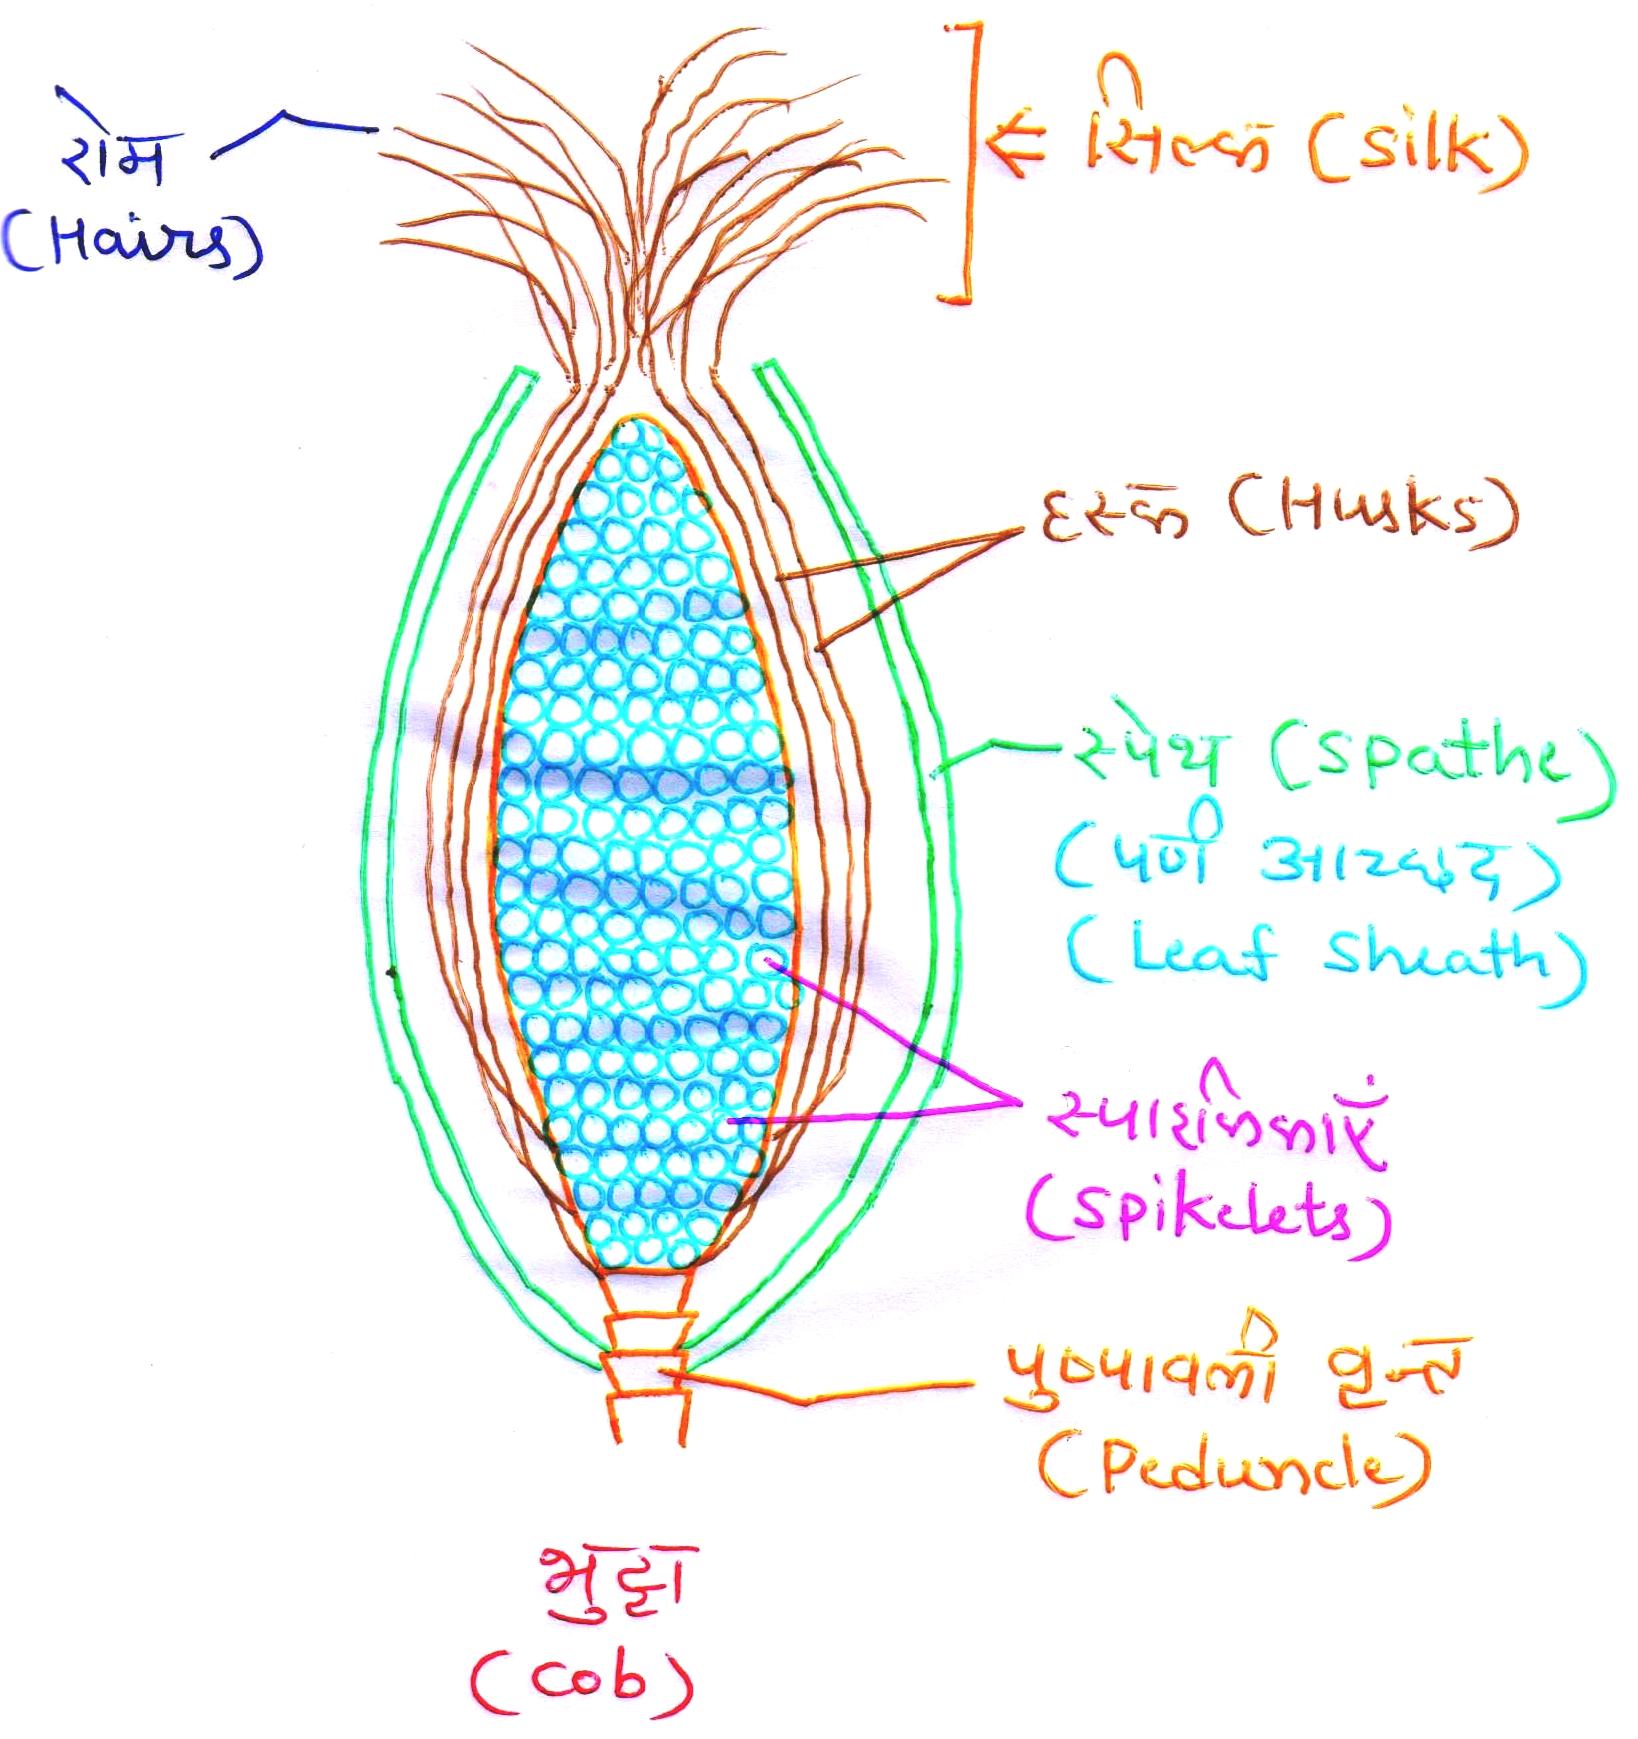 रोम
(Hairs)
← सिल्क (silk)
हस्क (Husks)
स्पेथ (spathe)
(पर्ण आच्छद)
(Leaf sheath)
स्पाइकिकाएँ
(spikelets)
पुष्पावली वृन्त
(Peduncle)
भुट्टा
(cob)